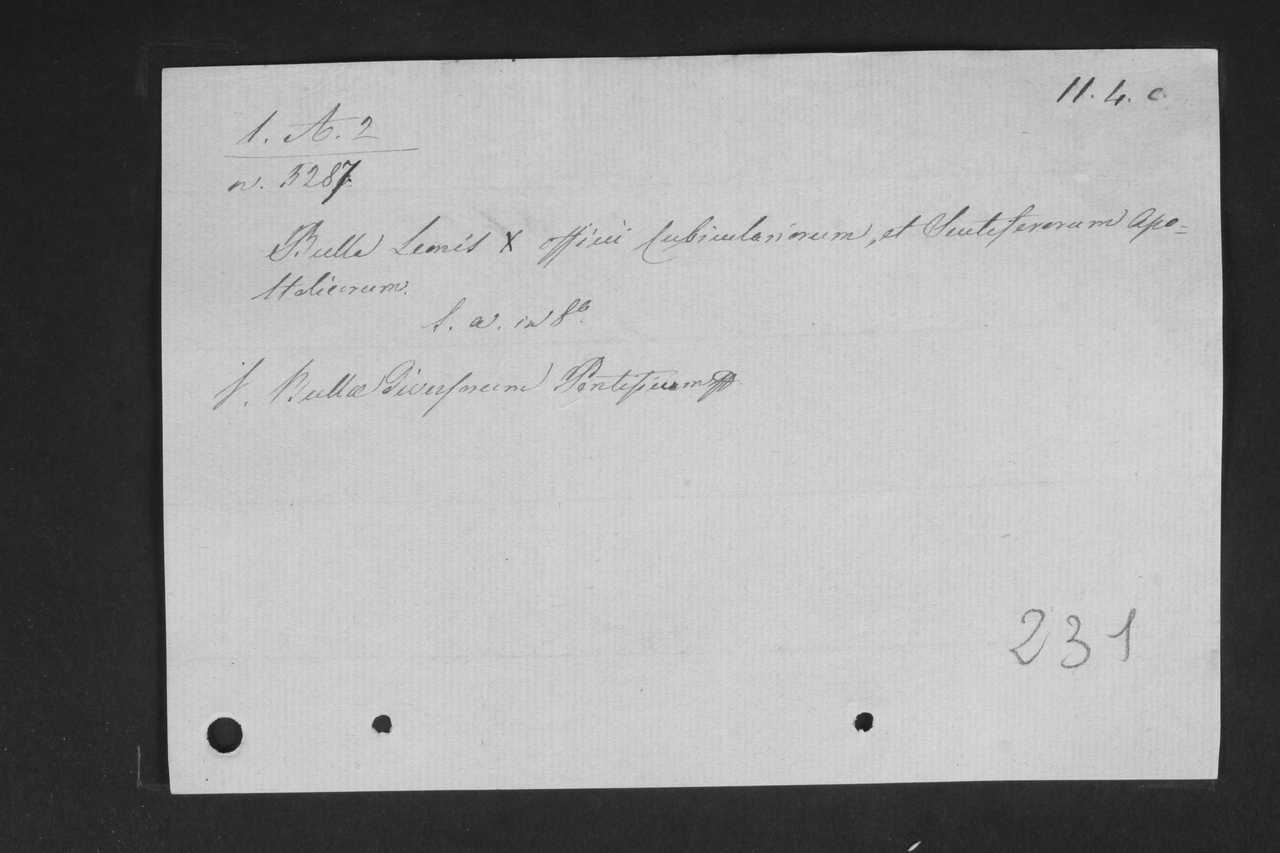 11. 4. c.
1. A. 2
n. 5287
Bulla Leonis X officii Cubiculariorum, et Scutiferorum Apo=
stolicorum.
s. a. in 8º.
V. Bullae Diversorum Pontificum
231